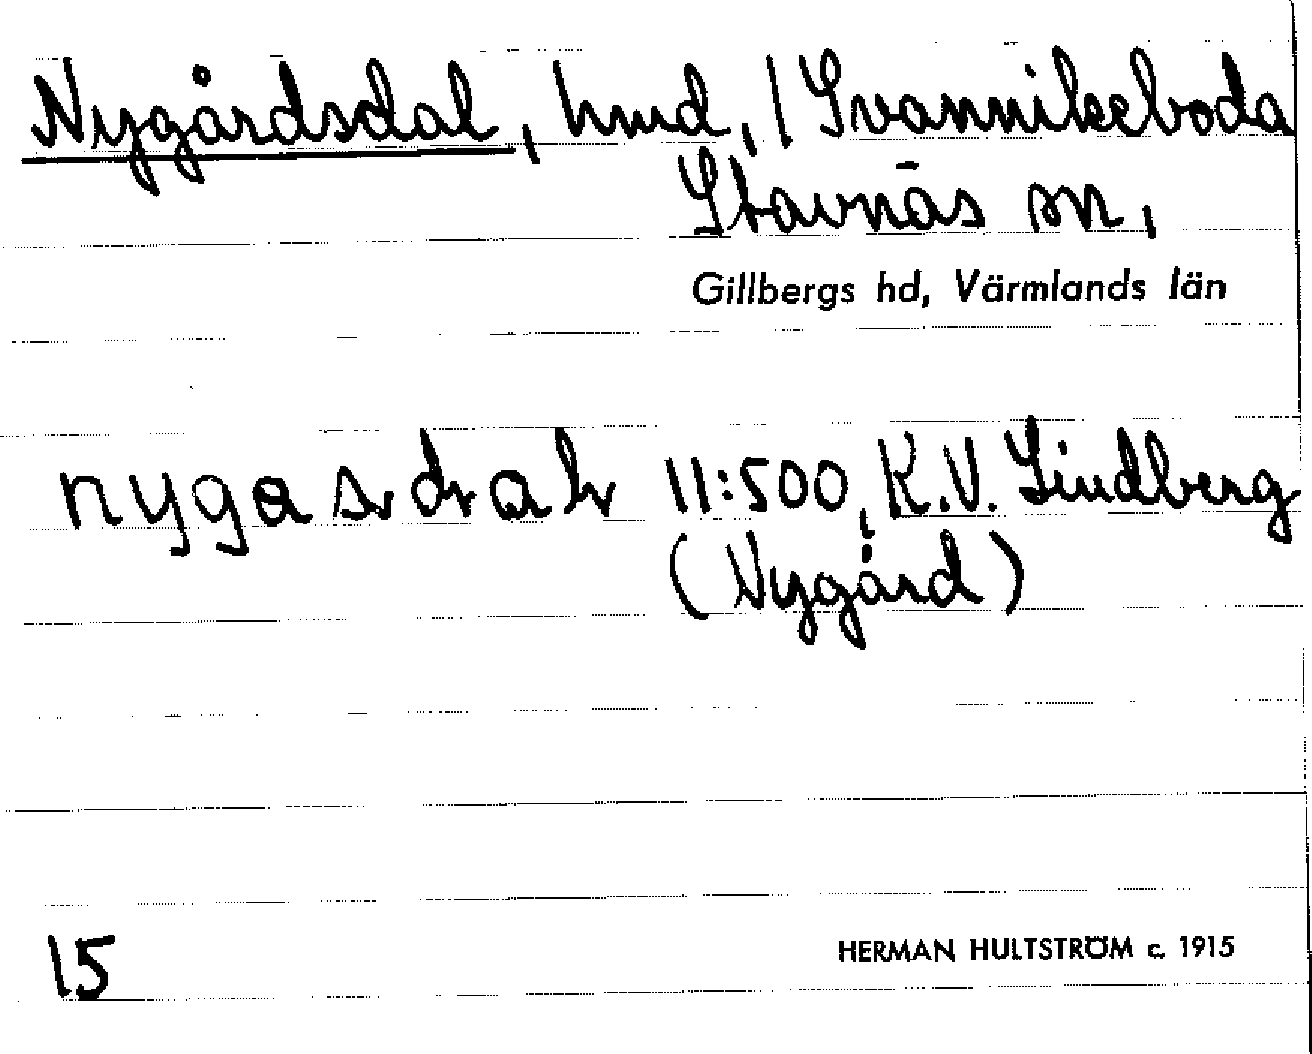 Nygårdsdal, hmd, / Svannikeboda
Stavnäs sn,
Gillbergs hd, Värmlands län
nygasdal 11:500, K.V. Lindberg
(Nygård)
15
HERMAN HULTSTRÖM c. 1915